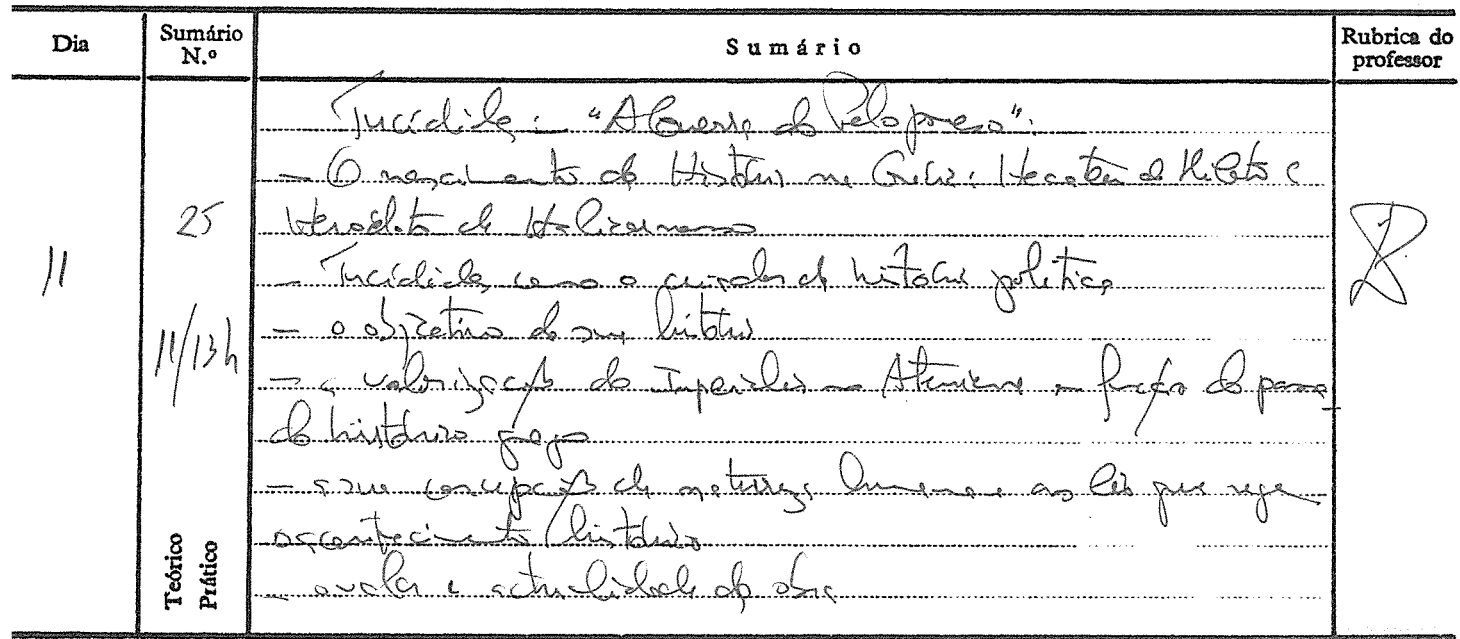 Dia
Sumário N.º
Sumário
Rubrica do professor
Tucídides: "A Guerra do Peloponeso":
- O nascimento da História na Grécia: Hecateu de Mileto e
25
Heródoto de Halicarnasso
11
- Tucídides como o criador da história política
- o objetivo da sua história
11/13h
- a valorização do Imperialismo Ateniense em função do passa
do histórico grego
- a sua concepção de natureza humana e as leis que regem
o acontecimento histórico
Teórico
Prático
- o valor e actualidade da obra